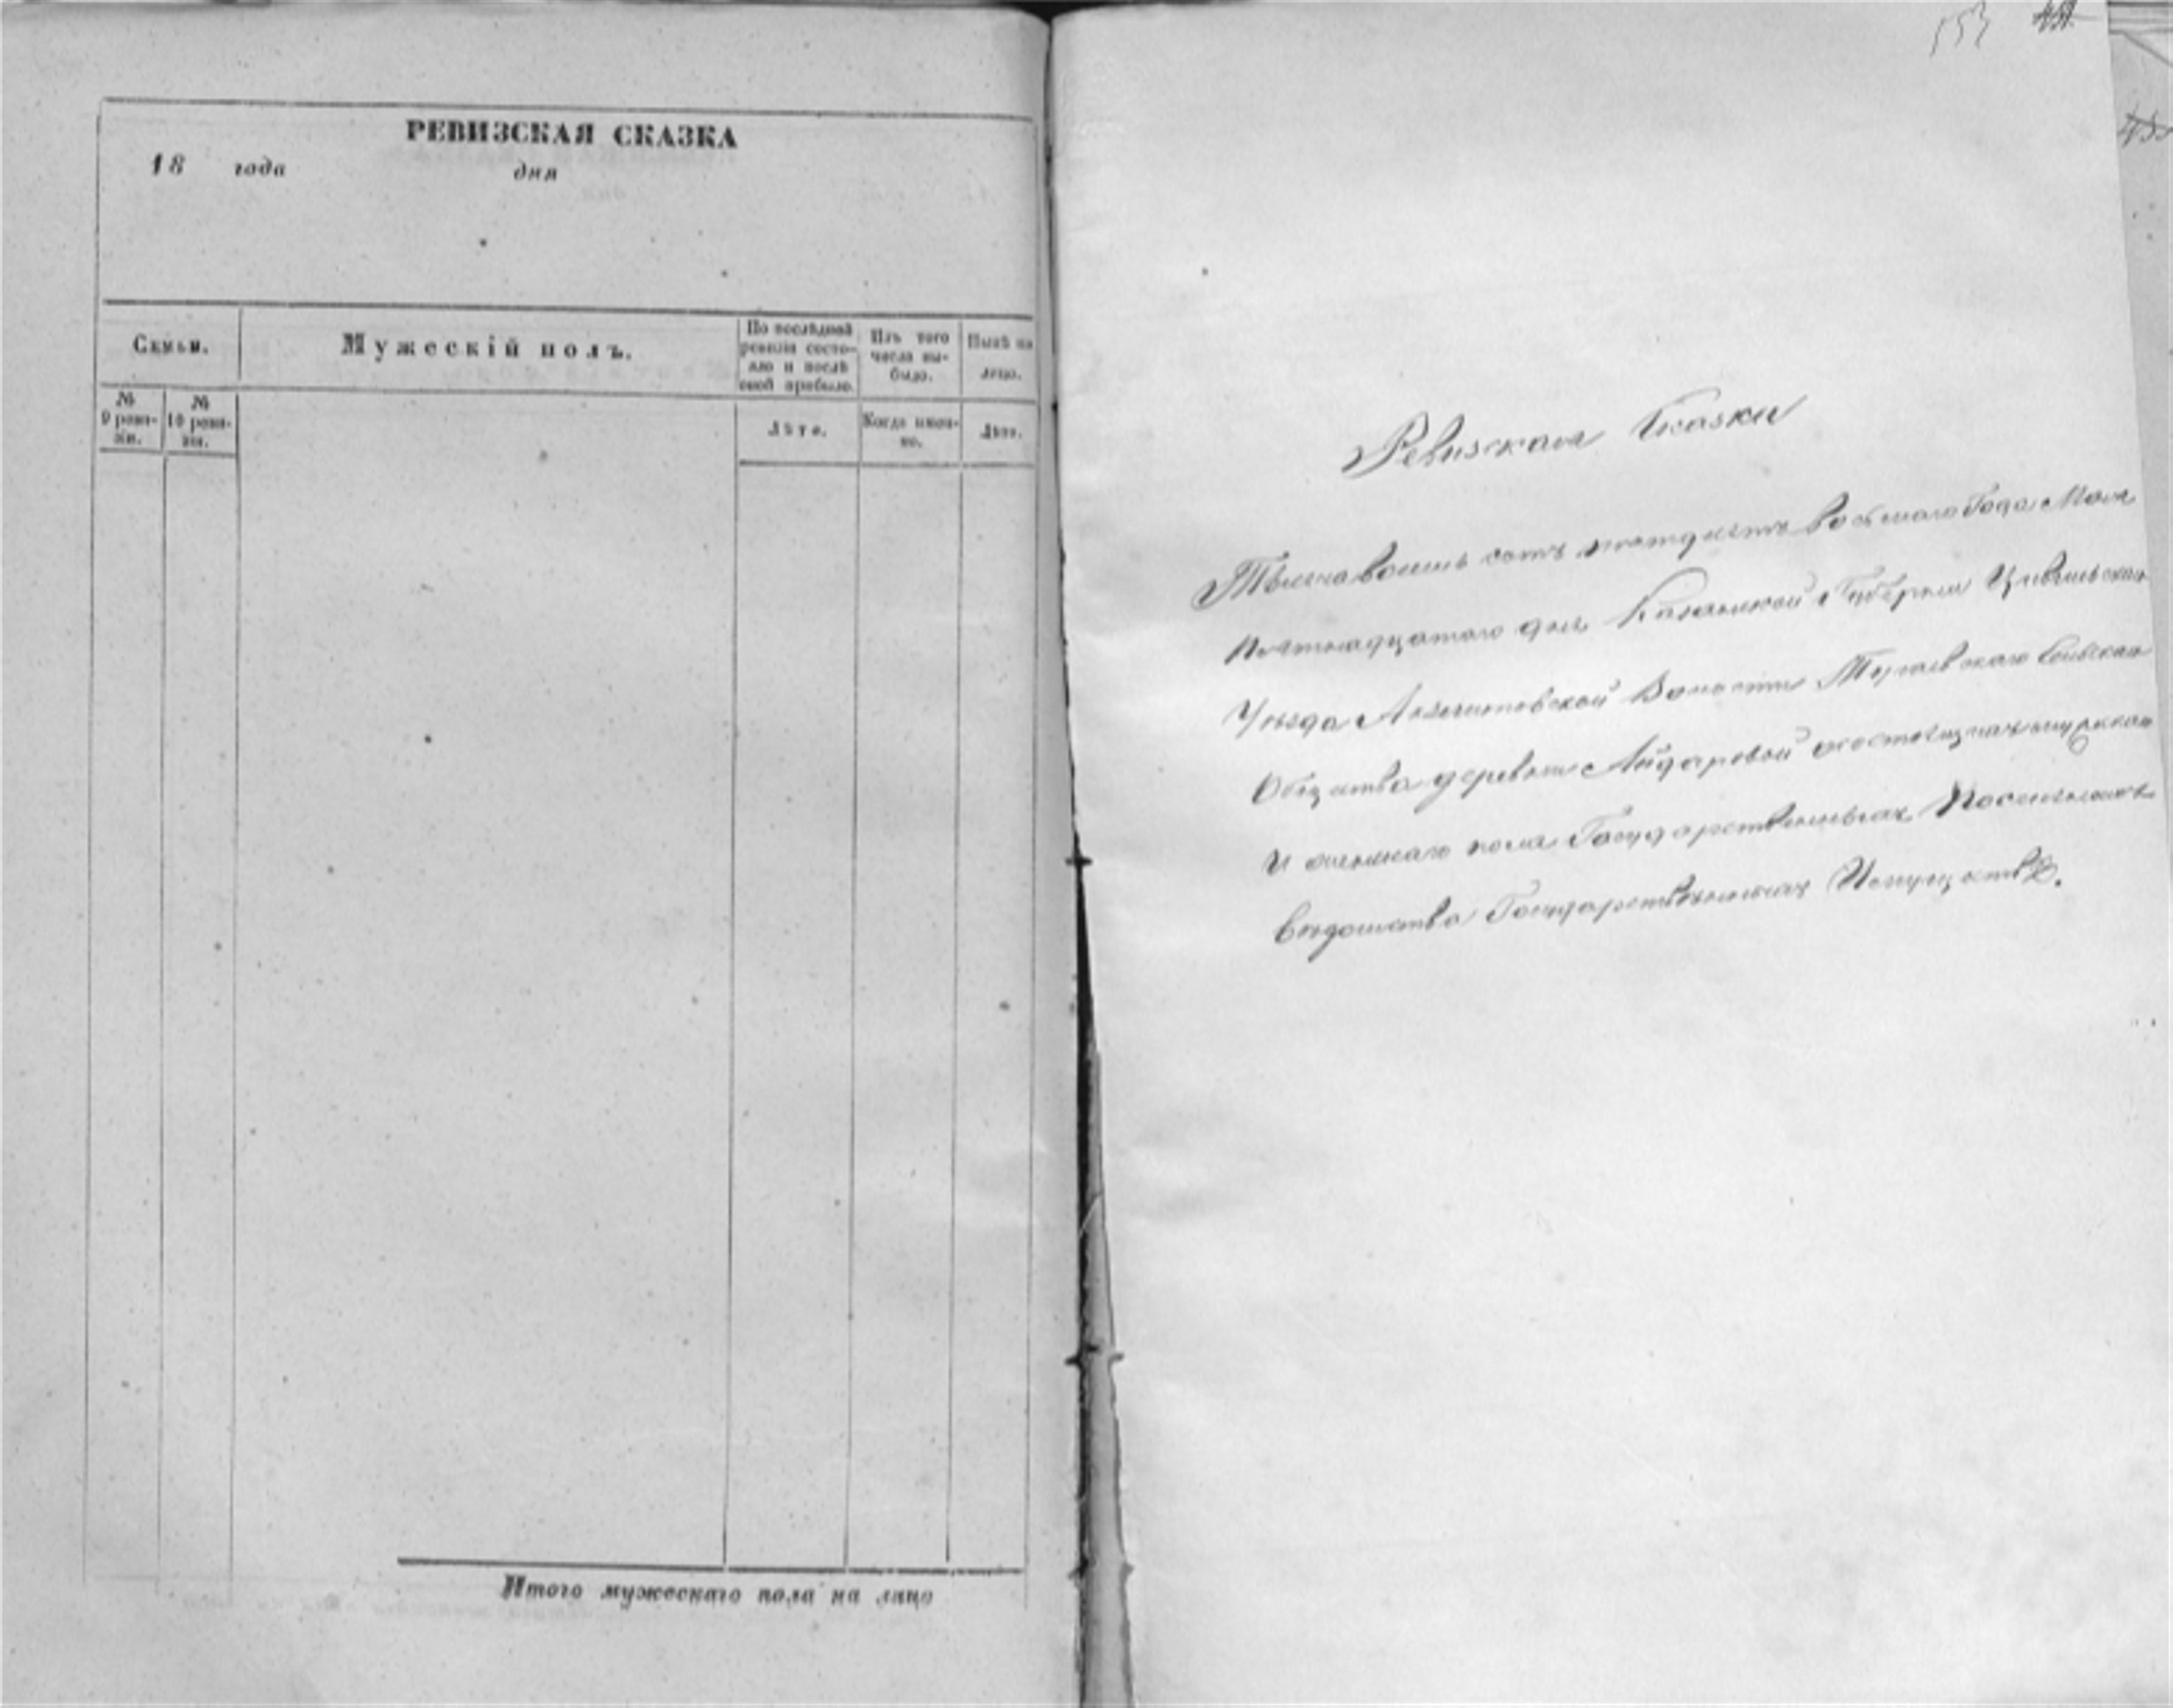 РЕВИЗСКАЯ СКАЗКА
18 года дня
Семьи.
Мужескій полъ.
По послѣдней ревизіи состояло и послѣ оной прибыло.
Изъ того числа выбыло.
Нынѣ на лицо.
№ 9 ревизіи.
№ 10 ревизіи.
Лѣта.
Когда именно.
Лѣта.
Итого мужескаго пола на лицо
553
Ревизская Сказки
Тысяча восемь сотъ пятдесятъ восьмаго Года Мая
пятнадцатого дня Казанской Губернии Цивильскаго
Уѣзда Волости Тугаевскаго Сельскаго
Общества деревни Айдаровой о состоящихъ мужскаго
И женскаго пола Государственныхъ Поселянахъ
Вѣдомства Государственныхъ Имуществъ.